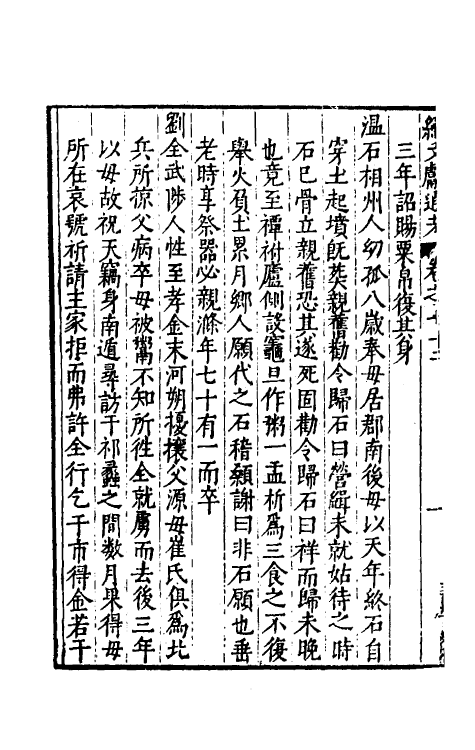 續文獻通考 卷之七十三
三年詔賜粟帛復其身
温石相州人幼孤八歲奉母居郡南後母以天年終石自
穿土起墳旣葬親舊勸令歸石曰營緝未就姑待之時
石已骨立親舊恐其遂死固勸令歸石曰祥而歸未晚
也竟至禫祔廬側設竈旦作粥一盂析爲三食之不復
舉火負土累月鄉人願代之石稽顙謝曰非石願也垂
老時享祭器必親滌年七十有一而卒
劉全武陟人性至孝金末河朔擾攘父源母崔氏俱爲北
兵所掠父病卒母被鬻不知所徃全就虜而去後三年
以母故祝天竊身南遁尋訪于祁蠡之間數月果得母
所在哀號祈請主家拒而弗許全行乞于市得金若干
一